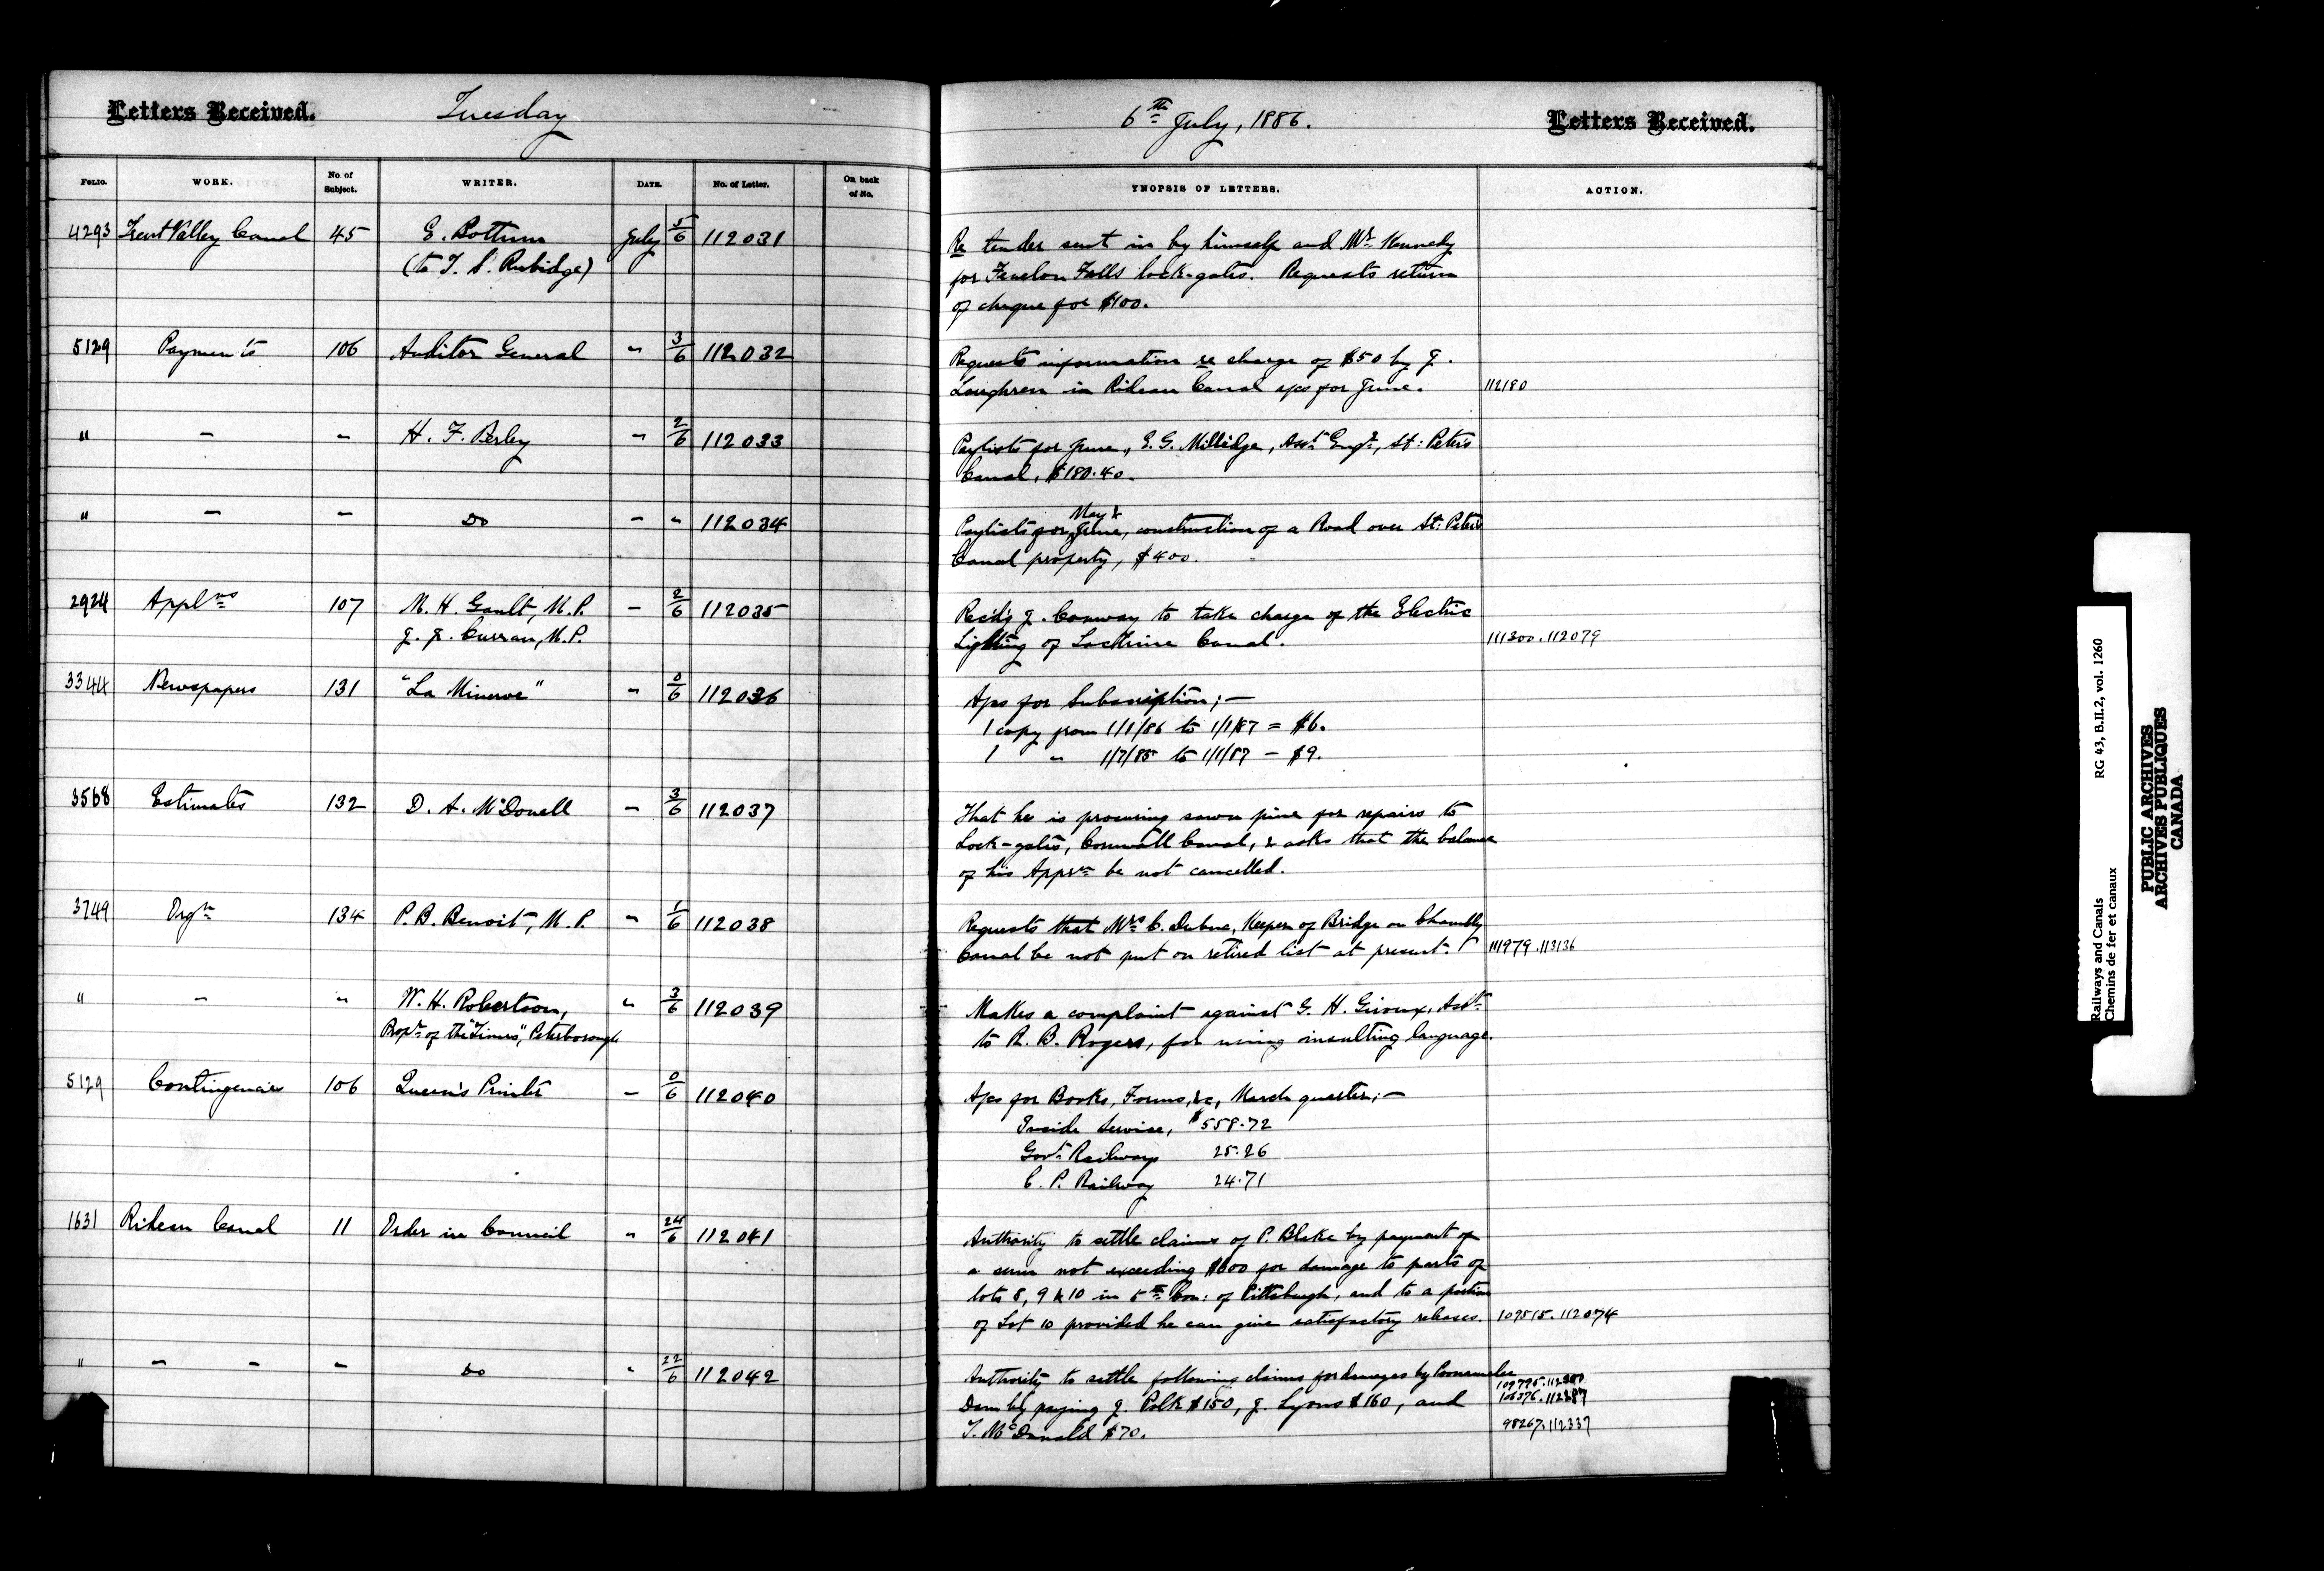 Letters Received. Tuesday
6th July, 1886. Letters Received.
FOLIO. WORK. No. of Subject. WRITER. DATE. No. of Letter. On back of No.
YNOPSIS OF LETTERS. ACTION.
4293 Trent Valley Canal 45 E. Bottum July 5/6 112031
(to T. S. Rubidge)
Re tender sent in by himself and Mr. Kennedy
for Fenelon Falls lock-gates. Requests return
of cheque for $100.
5129 Payments 106 Auditor General " 3/6 112032
Requests information re charge of $50 by J.
Loughren in Rideau Canal a/cs for June. 112180
" " " H. F. Perley " 2/6 112033
Paylists for June, E. G. Millidge, Asst. Engr., St: Peter's
Canal, $180.40.
" " " Do " " 112034
Paylists for May & June, construction of a Road over St: Peter's
Canal property, $400.
2924 Applns 107 M. H. Gault, M.P. " 2/6 112035
J. J. Curran, M.P.
Recds J. Conway to take charge of the Electric
Lighting of Lachine Canal. 111300.112079
3344 Newspapers 131 "La Minerve" " 0/6 112036
A/cs for Subscription;—
1 copy from 1/1/86 to 1/1/87 = $6.
1 " 1/7/85 to 1/1/87 — $9.
3568 Estimates 132 D. A. McDonell " 3/6 112037
That he is procuring sawn pine for repairs to
Lock-gates, Cornwall Canal, & asks that the balance
of his Apprn be not cancelled.
3749 Orgn 134 P. B. Benoit, M.P. " 1/6 112038
Requests that Mrs C. Dubuc, Keeper of Bridge on Chambly
Canal be not put on retired list at present. 111979.113136
" " " W. H. Robertson, " 3/6 112039
Propr of the "Times", Peterborough
Makes a complaint against G. H. Giroux, Asst
to R. B. Rogers, for using insulting language.
5129 Contingencies 106 Queen's Printer " 0/6 112040
A/cs for Books, Forms, &c, March quarter;—
Inside Service, $559.72
Govt Railways 25.26
C. P. Railway 24.71
1631 Rideau Canal 11 Order in Council " 24/6 112041
Authority to settle claims of P. Blake by payment of
a sum not exceeding $600 for damage to parts of
lots 8, 9 & 10 in 5th Con: of Pittsburgh, and to a portion
of Lot 10 provided he can give satisfactory releases. 109515.112074
" " " " Do " 22/6 112042
Authority to settle following claims for damages by
Dam by paying J. Polk $150, J. Lyons $160, and
T. McDonald $70. 98267.112337
Railways and Canals RG 43, B.II.2, vol. 1260
Chemins de fer et canaux
PUBLIC ARCHIVES
ARCHIVES PUBLIQUES
CANADA